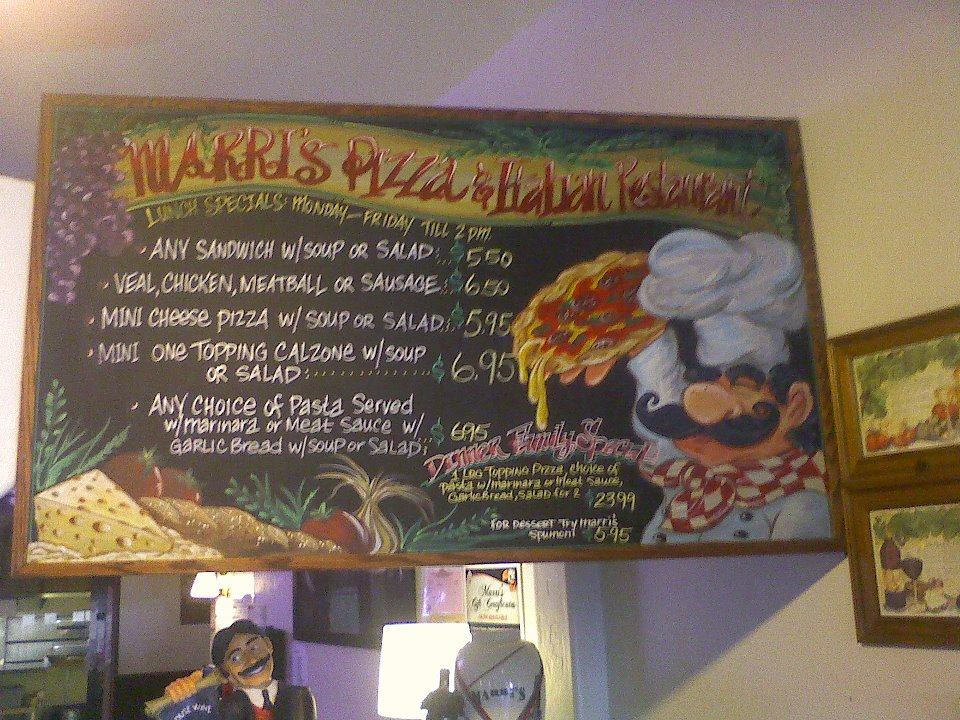 MARRI'S Pizza & Italian Restaurant
LUNCH SPECIALS: MONDAY-FRIDAY TILL 2 PM
• ANY SANDWICH W/SOUP OR SALAD: $ 5.50
• VEAL, CHICKEN, MEATBALL OR SAUSAGE: $ 6.50
• MINI CHEESE PIZZA W/ SOUP OR SALAD: $ 5.95
• MINI ONE TOPPING CALZONE W/SOUP
OR SALAD:.............. $ 6.95
• ANY CHOICE of Pasta Served
w/marinara or Meat Sauce w/
GARLIC Bread w/soup or Salad: $ 6.95
Dinner Family Special
1 Topping Pizza, Choice of
Pasta w/marinara or Meat Sauce,
Garlic Bread, Salad for 2 $23.99
FOR DESSERT Try Marri's
Spumoni $5.95
Marri's
HOUSE WINE
MARRI'S